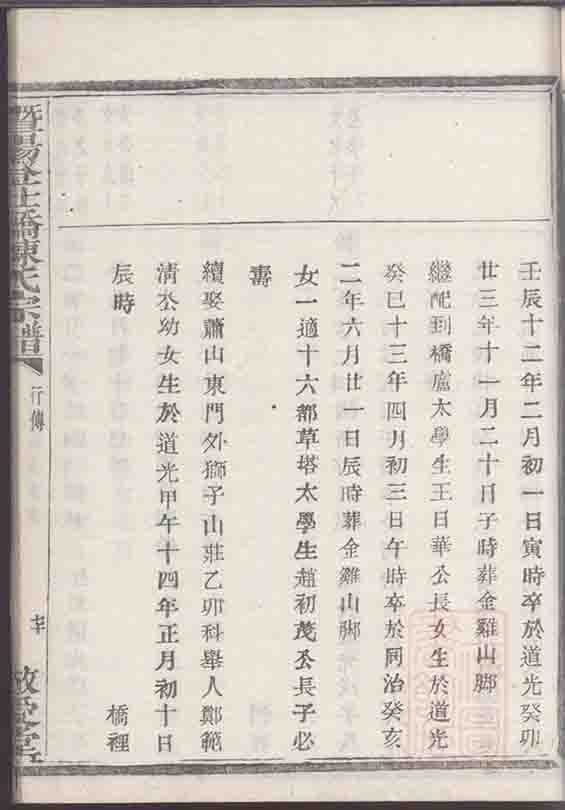 壬辰十二年二月初一日寅時卒於道光癸卯
廿三年十一月二十日子時葬金雞山脚
繼配到橋廬太學生王日華公長女生於道光
癸巳十三年四月初三日午時卒於同治癸亥
二年六月廿一日辰時葬金雞山脚
女一適十六都草塔太學生趙初茂公長子必
壽
續娶蕭山東門外獅子山莊乙卯科舉人鄭範
清公幼女生於道光甲午十四年正月初十日
辰時
橋裡
暨陽 橋陳氏宗譜
行傳
敬愛堂